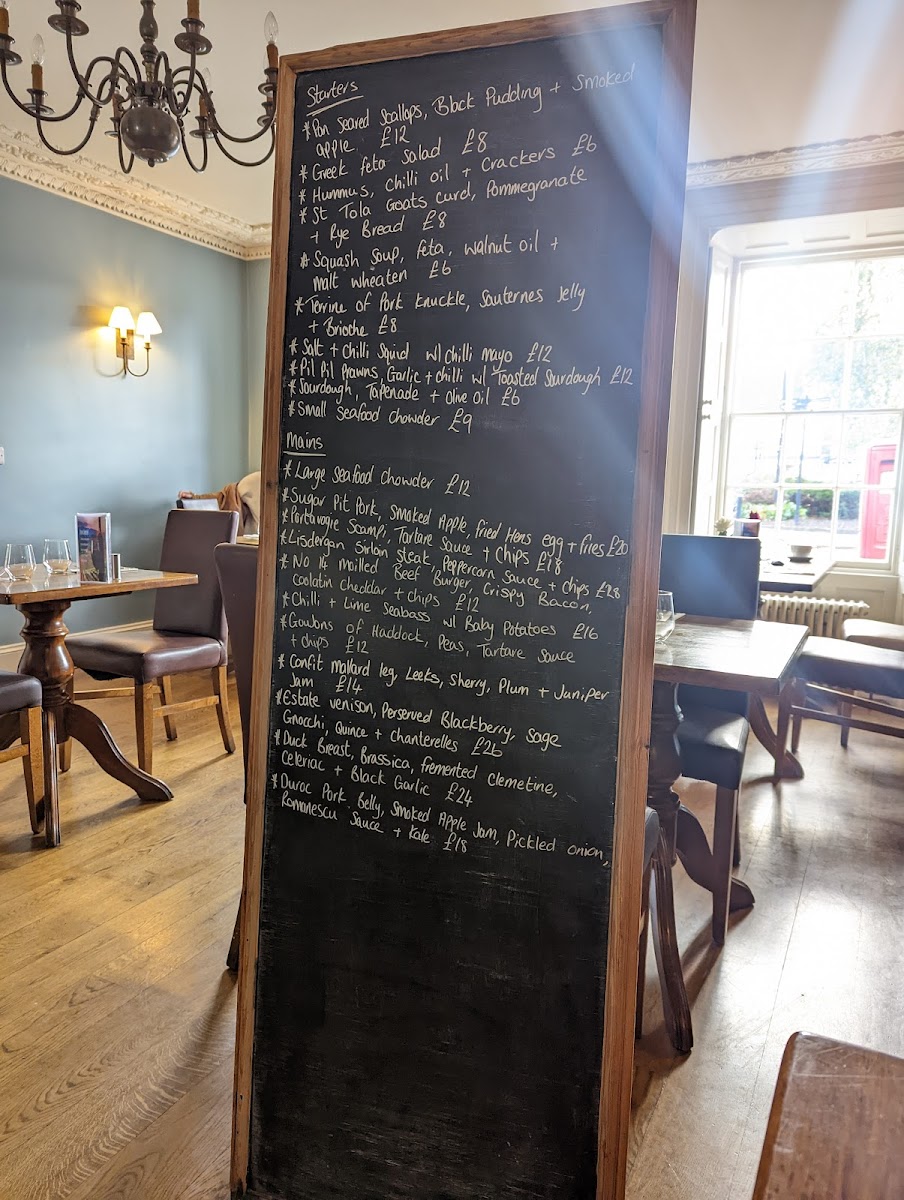 Starters
* Pan seared scallops, Black Pudding + Smoked
apple £12
* Greek feta salad £8
* Hummus, chilli oil + Crackers £6
* St Tola Goats curd, Pommegranate
+ Rye Bread £8
* Squash Soup, feta, walnut oil +
malt wheaten £6
* Terrine of Pork knuckle, Sauternes Jelly
+ Brioche £8
* Salt + Chilli Squid w/ chilli mayo £12
* Pil Pil Prawns, Garlic + chilli w/ Toasted Sourdough £12
* Sourdough, Tapenade + Olive oil £6
* Small seafood chowder £9
Mains
* Large seafood chowder £12
* Sugar Pit Pork, Smoked Apple, fried Hens egg + fries £20
* Portavogie Scampi, Tartare Sauce + chips £18
* Lisdergan Sirloin steak, Peppercorn sauce + chips £28
* No 14 Mailled Beef Burger, Crispy Bacon,
Coolatin cheddar + chips £12
* Chilli + Lime Seabass w/ Baby Potatoes £16
* Goujons of Haddock, Peas, Tartare Sauce
+ chips £12
* Confit mallard leg, Leeks, Sherry, Plum + Juniper
Jam £14
* Estate venison, Perserved Blackberry, Sage
Gnocchi, Quince + chanterelles £26
* Duck Breast, Brassica, fremented Clemetine,
Celeriac + Black Garlic £24
* Duroc Pork Belly, Smoked Apple Jam, Pickled onion,
Romanescu Sauce + Kale £18